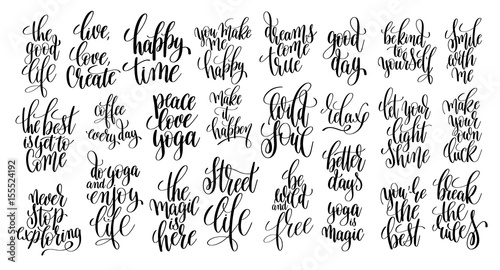 the
good
life
live,
love,
create
happy
time
you make
me
happy
dreams
come
true
good
day
be kind
to
yourself
smile
with
me
the best
is yet to
come
coffee
every day
peace
love
yoga
make
it
happen
wild
soul
relax
let your
light
shine
make
your
own
luck
never
stop
exploring
do yoga
and
enjoy
life
the
magic
is
here
street
life
be
wild
and
free
better
days
yoga
is
magic
you're
the
best
break
the
rules
Adobe Stock
#155524192